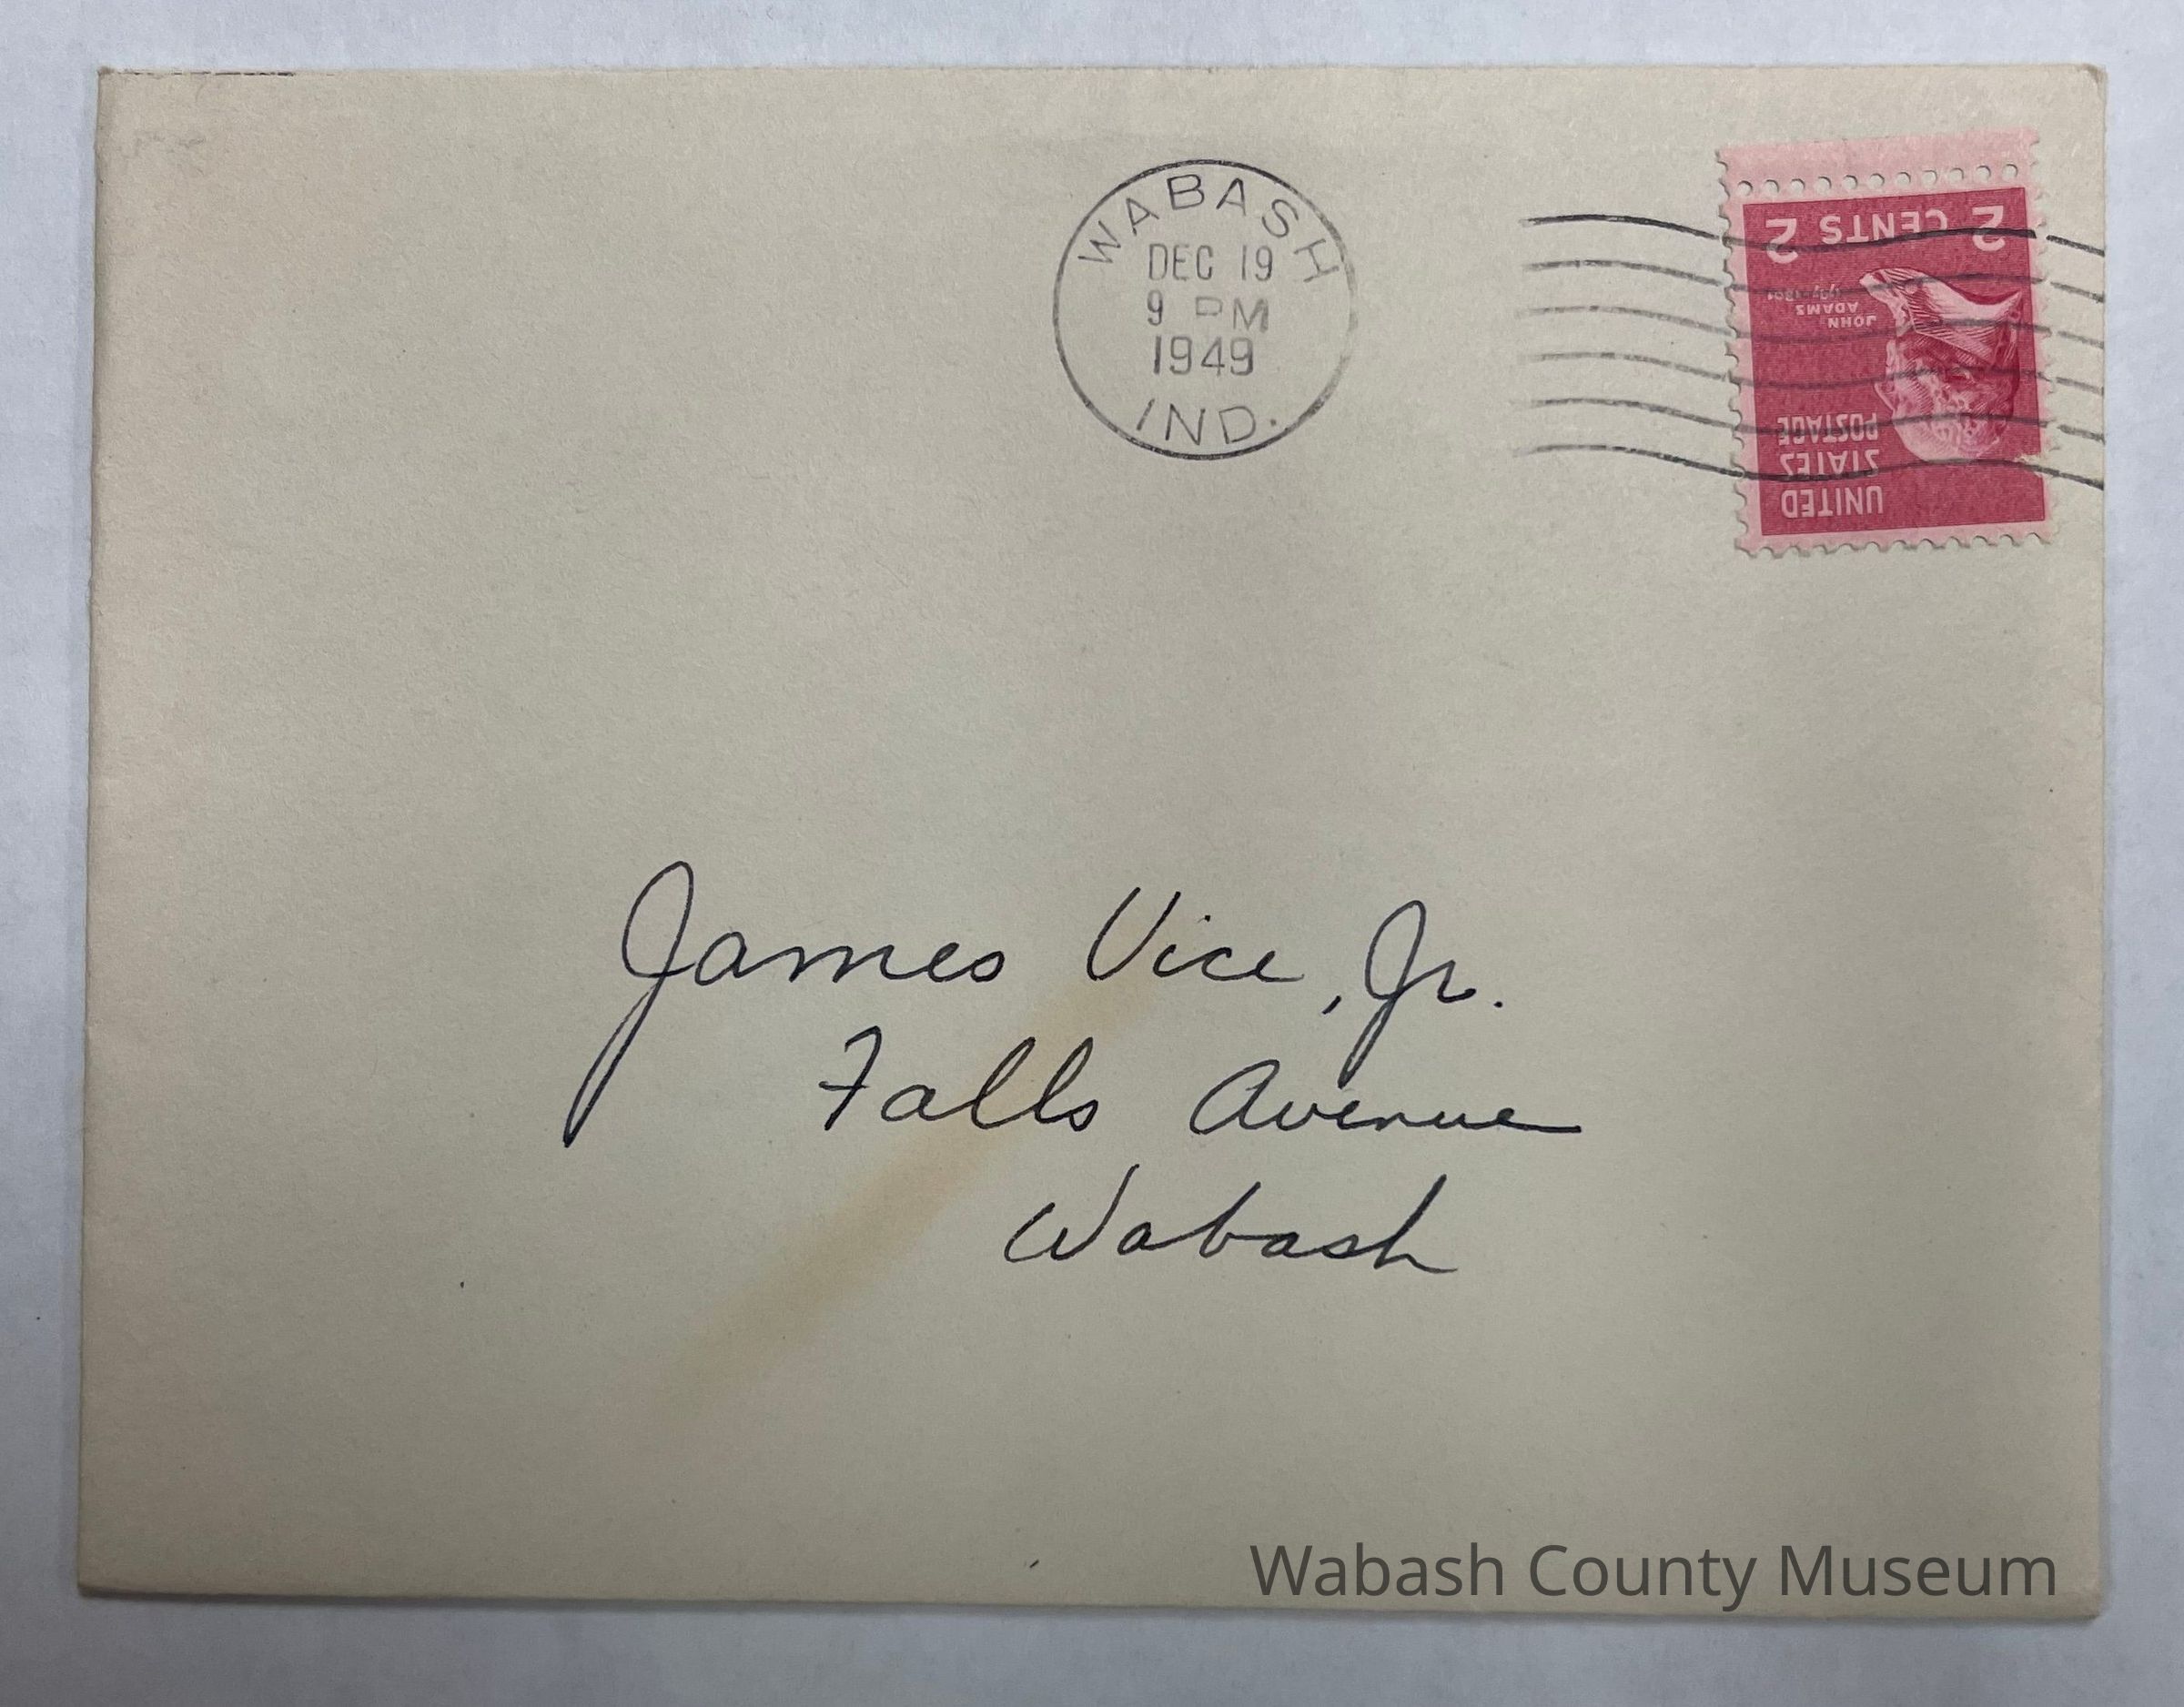 WABASH
DEC 19
9 PM
1949
IND.
2 CENTS 2
JOHN
ADAMS
1797-1801
UNITED
STATES
POSTAGE
James Vice, Jr.
Falls Avenue
Wabash
Wabash County Museum